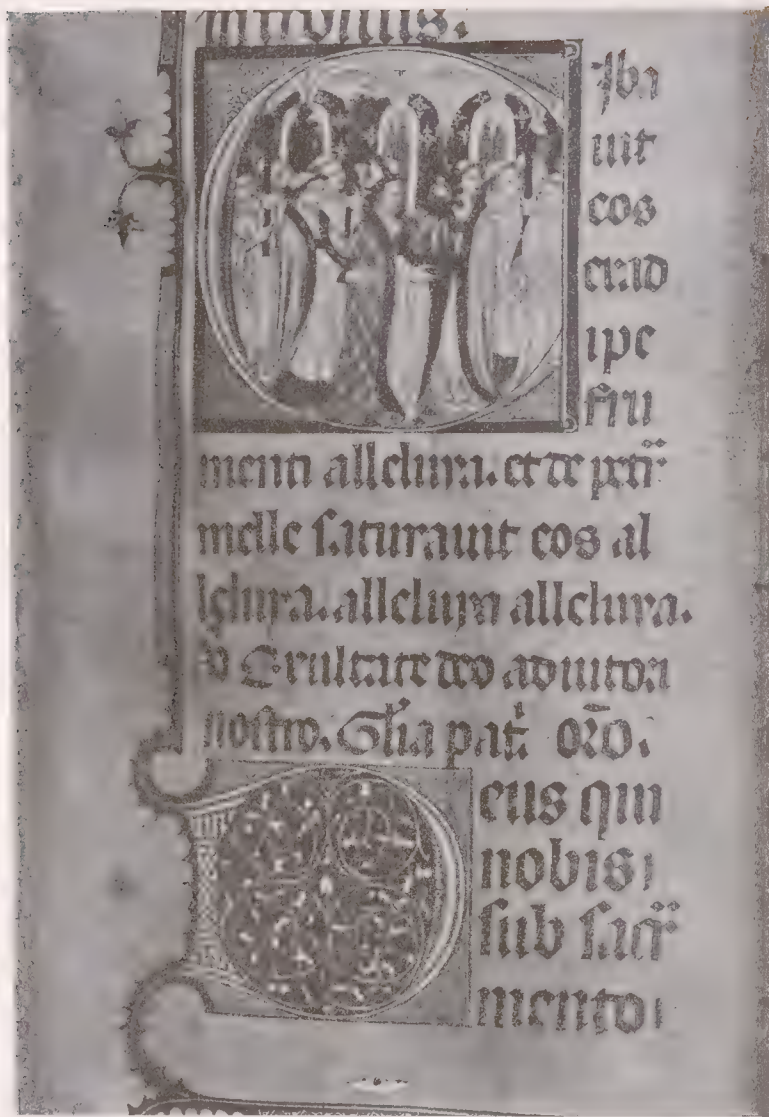 introitus.
Iba
uit
eos
exad
ipe
fru
menti alleluya. et de pet̃
melle saturauit eos al
leluya. alleluya alleluya.
Exultate deo adiutori
nostro. Gl̃ia pat̃. or̃o.
eus qui
nobis
sub sacr̃
mento